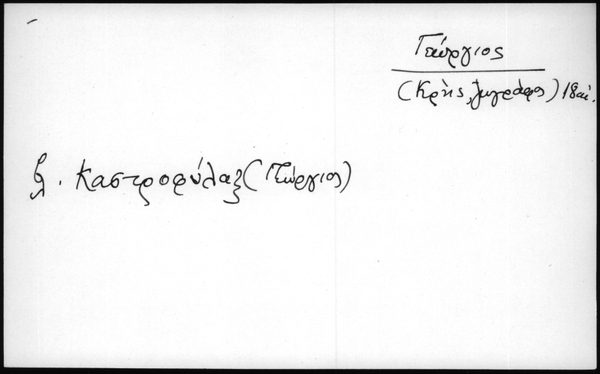 Γεώργιος
(Κρής, ζωγράφος) 18 αἰ.
βλ. Καστροφύλαξ (Γεώργιος)